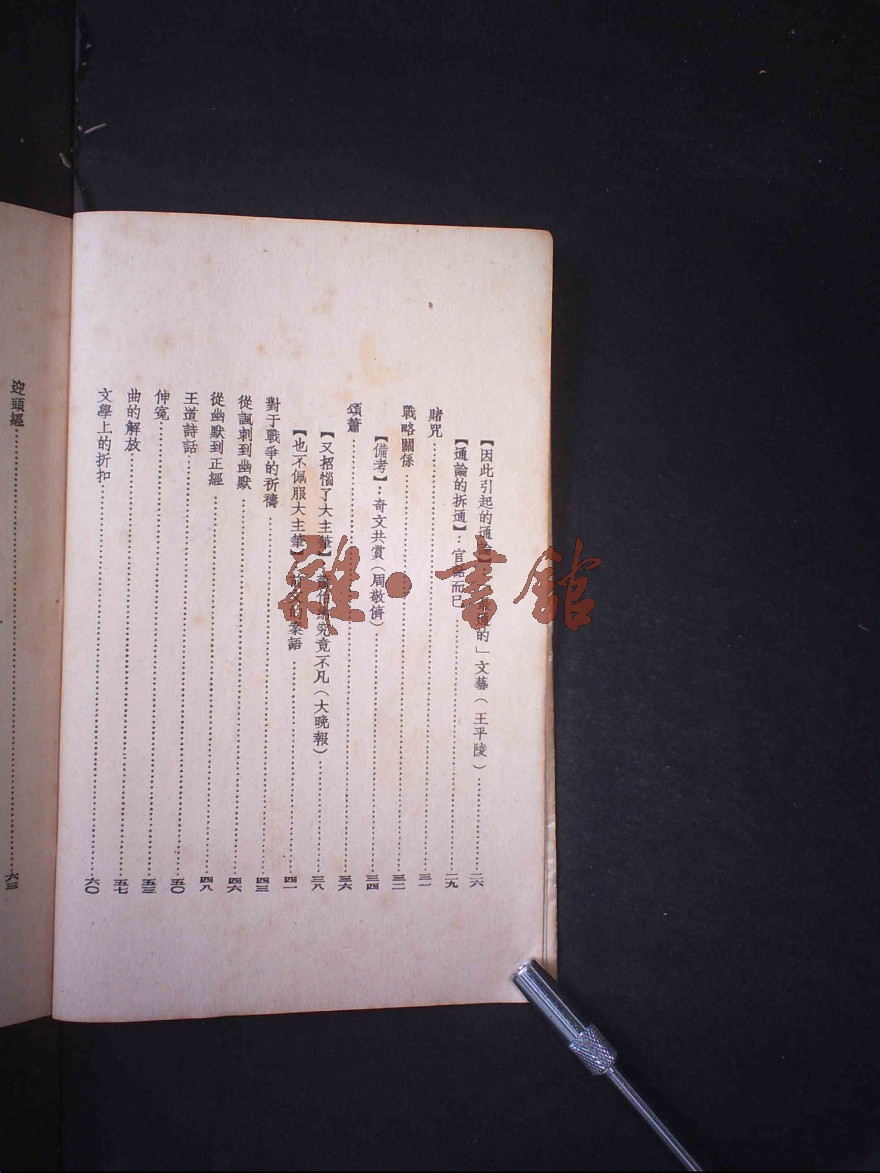 【因此引起的通論】:「最通的」文藝(王平陵)……二六
【通論的拆通】:官話而已……二九
賭咒……三一
戰略關係……三二
【備考】:奇文共賞(周敬儕)……三四
頌蕭……三六
【又招惱了大主筆】:蕭伯納究竟不凡(大晚報)……三八
【也不佩服大主筆】:前文的案語……四一
對于戰爭的祈禱……四三
從諷刺到幽默……四六
從幽默到正經……四八
王道詩話……五〇
伸冤……五三
曲的解放……五七
文學上的折扣……六〇
迎頭經……六三
雜·書館